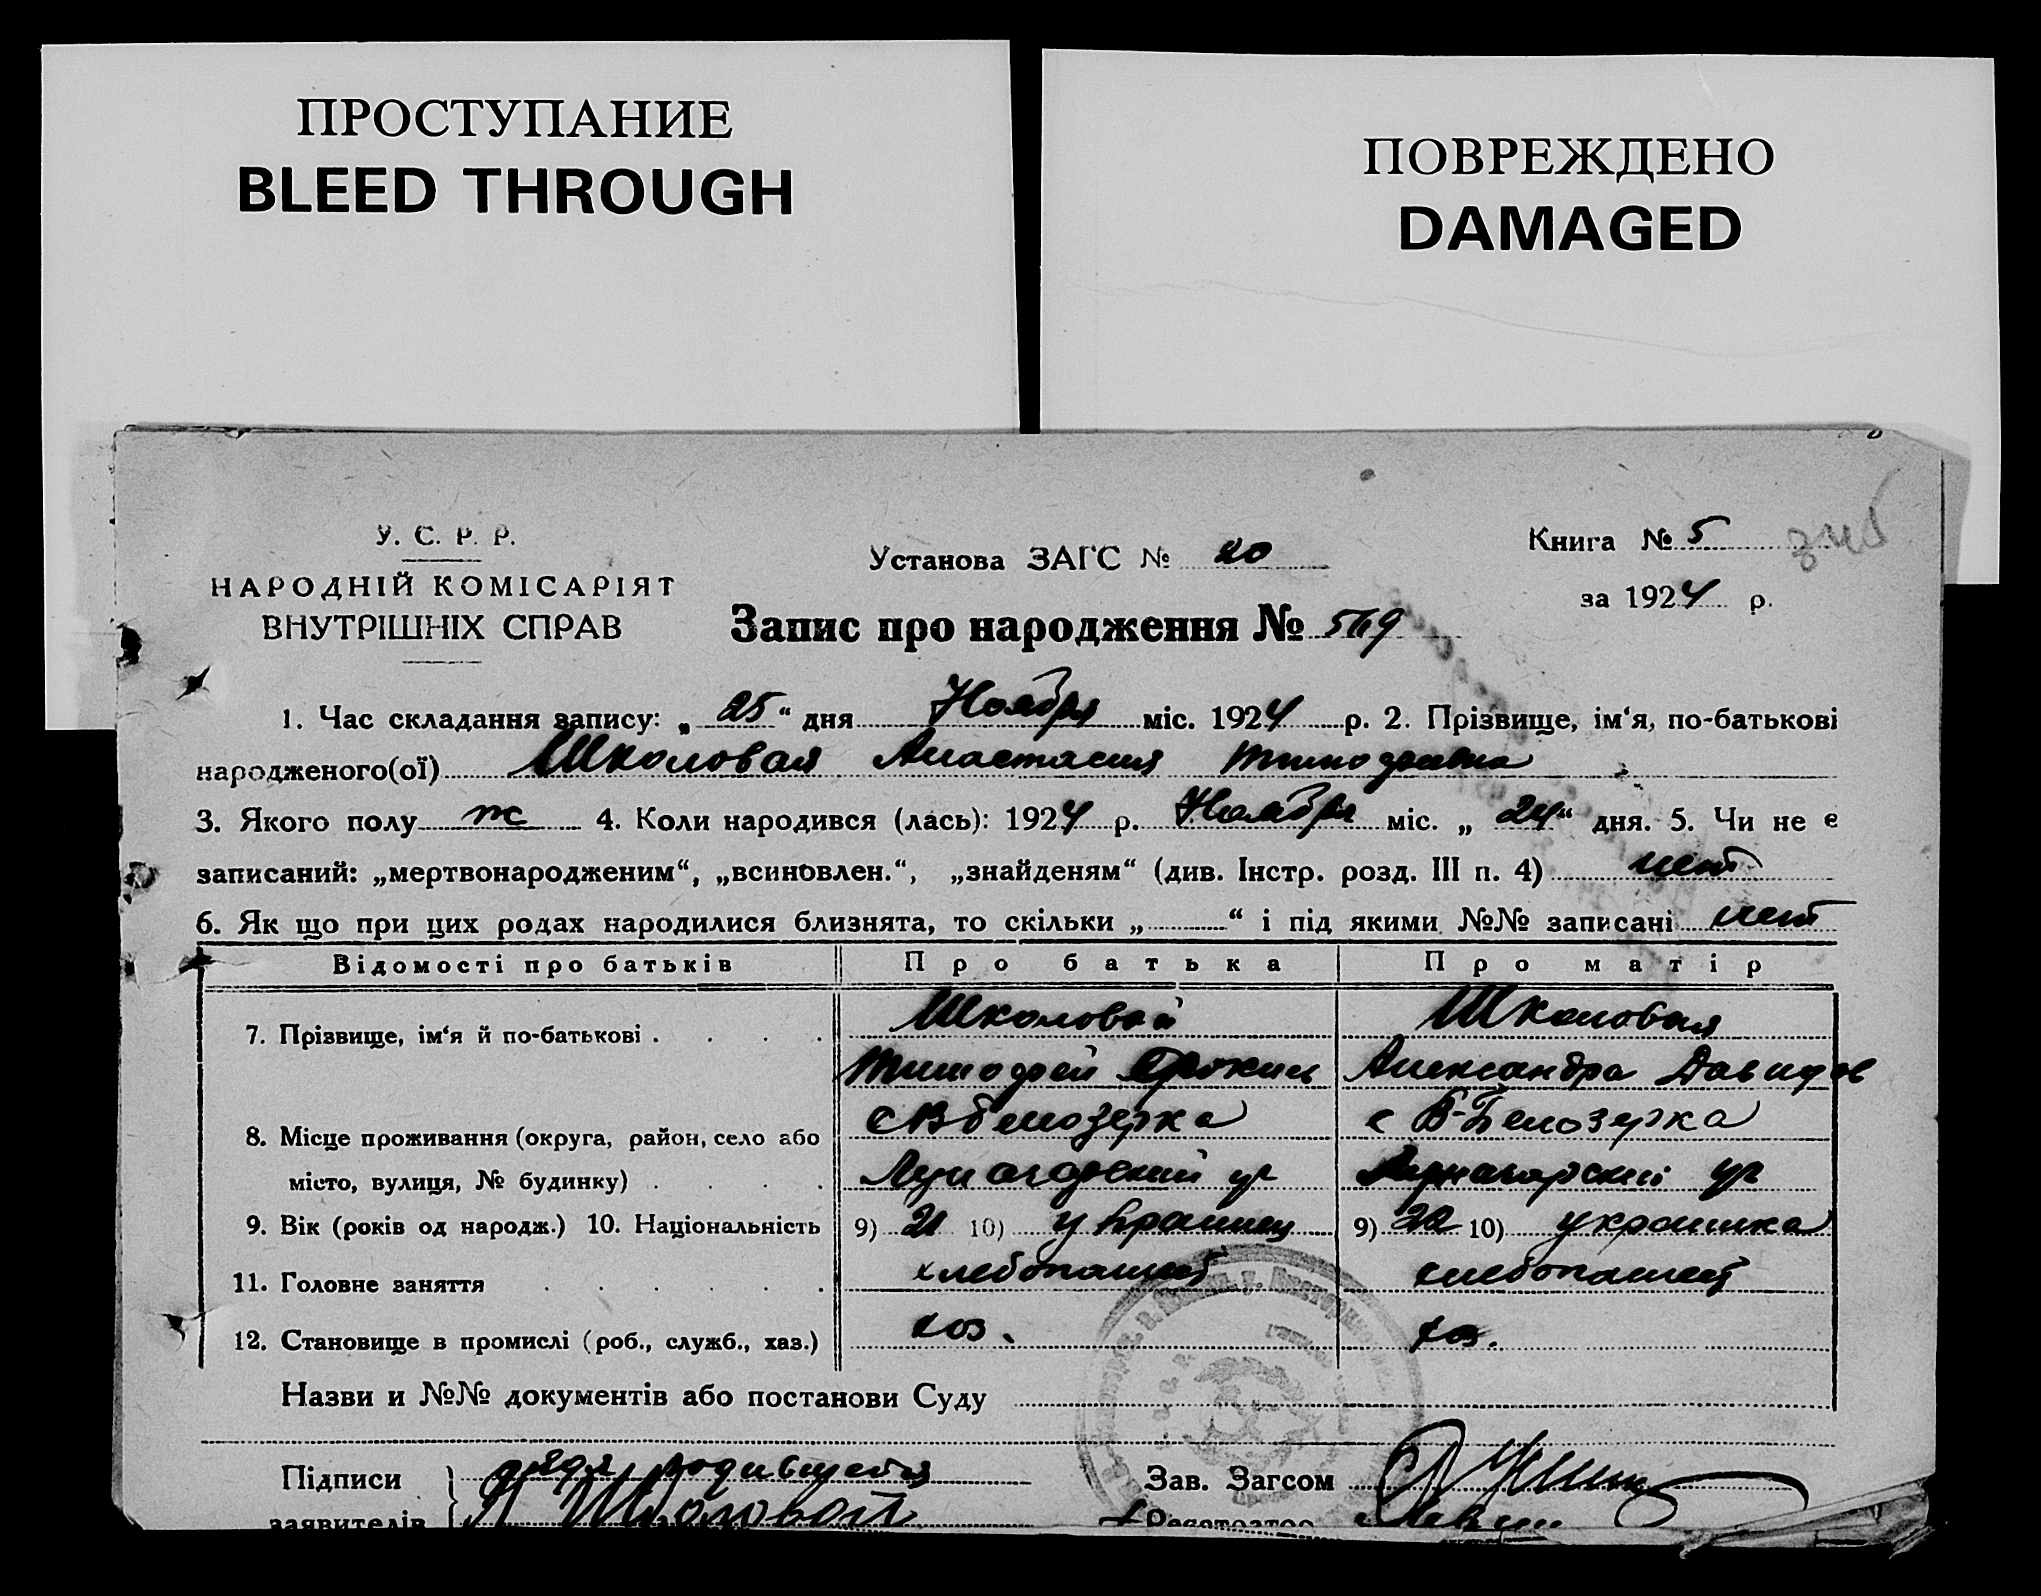 ПРОСТУПАНИЕ
BLEED THROUGH
ПОВРЕЖДЕНО
DAMAGED
У. С. Р. Р.
НАРОДНІЙ КОМІСАРІЯТ
ВНУТРІШНІХ СПРАВ
Установа ЗАГС № 20
Книга № 5
за 1924 р.
Запис про народження №
1. Час складання запису: „ 25 “ дня Ноября міс. 1924 р. 2. Прізвище, ім‘я, по-батькові
народженого(ої) Школовая Анастасия Тимофеевна
3. Якого полу ж 4. Коли народився (лась): 1924 р. Ноября міс. „ 24 “ дня. 5. Чи не є
записаний: „мертвонародженим“, „всиновлен.“, „знайденям“ (див. Інстр. розд. III п. 4) нет
6. Як що при цих родах народилися близнята, то скільки „ “ і під якими №№ записані нет
Відомості про батьків Про батька Про матір
7. Прізвище, ім‘я й по-батькові . . . . Школовой Школовая
Тимофей Александра Давидов
8. Місце проживання (округа, район, село або с В белозерка с В-Белозерка
місто, вулиця, № будинку) . . . .
9. Вік (років од народж.) 10. Національність 9) 21 10) украинец 9) 20 10) украинка
11. Головне заняття . . . . . . хлебопашец хлебопашец
12. Становище в промислі (роб., служб., хаз.) хоз. хоз.
Назви и №№ документів або постанови Суду
Підписи } родившейся Зав. Загсом
заявителів Школовой Реєстратор